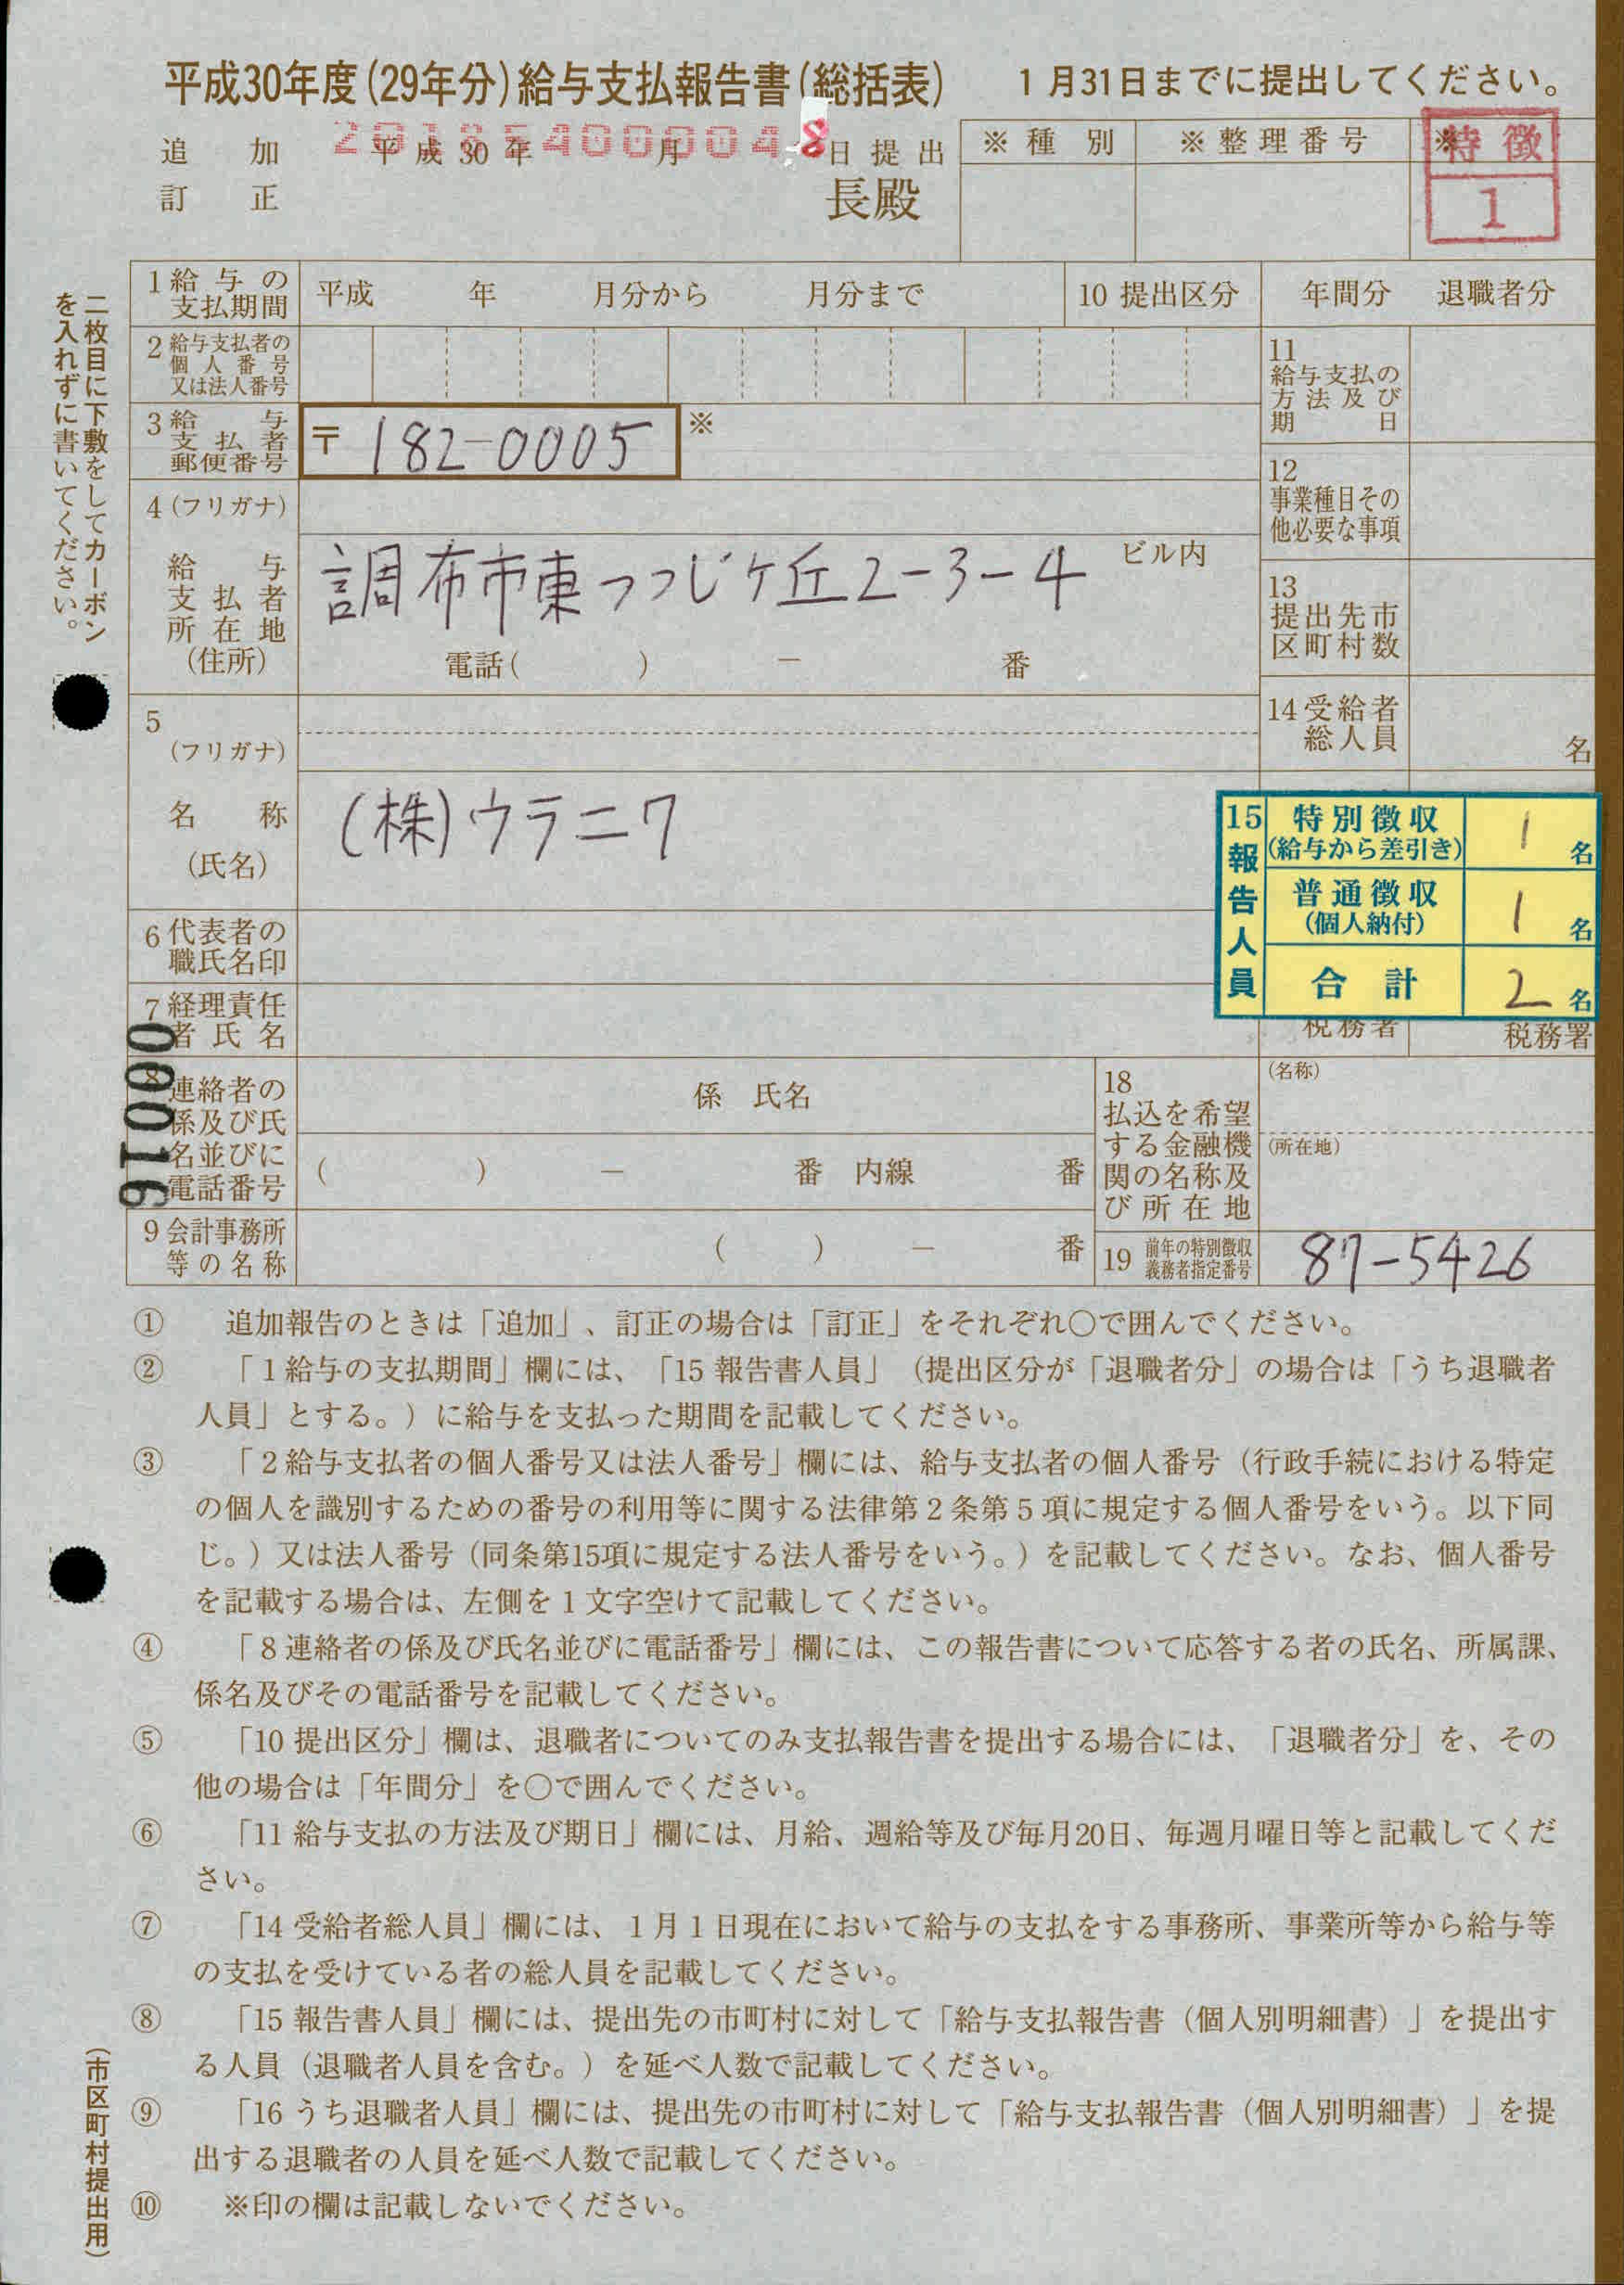 平成30年度(29年分)給与支払報告書(総括表) 1月31日までに提出してください。
追加 平成30年 月 日提出
訂正 長殿
※種別 ※整理番号 ※
特徴
1
二枚目に下敷をしてカーボン
を入れずに書いてください。
1 給与の支払期間 平成 年 月分から 月分まで 10 提出区分 年間分 退職者分
2 給与支払者の個人番号又は法人番号
11 給与支払の方法及び期日
3 給与支払者郵便番号 〒 182-0005 ※
12 事業種目その他必要な事項
4 (フリガナ)
給与支払者所在地(住所) 調布市東つつじケ丘2-3-4 ビル内
電話( ) - 番
13 提出先市区町村数
5 (フリガナ)
14 受給者総人員 名
名称(氏名) (株)ウラニワ
15 報告人員
特別徴収(給与から差引き) 1名
普通徴収(個人納付) 1名
合計 2名
6 代表者の職氏名印
7 経理責任者氏名
税務署 税務署
00016
8 連絡者の係及び氏名並びに電話番号 係 氏名
( ) - 番 内線 番
18 払込を希望する金融機関の名称及び所在地 (名称)
(所在地)
9 会計事務所等の名称 ( ) - 番
19 前年の特別徴収義務者指定番号 87-5426
① 追加報告のときは「追加」、訂正の場合は「訂正」をそれぞれ○で囲んでください。
② 「1給与の支払期間」欄には、「15 報告書人員」(提出区分が「退職者分」の場合は「うち退職者
人員」とする。)に給与を支払った期間を記載してください。
③ 「2給与支払者の個人番号又は法人番号」欄には、給与支払者の個人番号(行政手続における特定
の個人を識別するための番号の利用等に関する法律第2条第5項に規定する個人番号をいう。以下同
じ。)又は法人番号(同条第15項に規定する法人番号をいう。)を記載してください。なお、個人番号
を記載する場合は、左側を1文字空けて記載してください。
④ 「8連絡者の係及び氏名並びに電話番号」欄には、この報告書について応答する者の氏名、所属課、
係名及びその電話番号を記載してください。
⑤ 「10 提出区分」欄は、退職者についてのみ支払報告書を提出する場合には、「退職者分」を、その
他の場合は「年間分」を○で囲んでください。
⑥ 「11 給与支払の方法及び期日」欄には、月給、週給等及び毎月20日、毎週月曜日等と記載してくだ
さい。
⑦ 「14 受給者総人員」欄には、1月1日現在において給与の支払をする事務所、事業所等から給与等
の支払を受けている者の総人員を記載してください。
⑧ 「15 報告書人員」欄には、提出先の市町村に対して「給与支払報告書(個人別明細書)」を提出す
る人員(退職者人員を含む。)を延べ人数で記載してください。
⑨ 「16 うち退職者人員」欄には、提出先の市町村に対して「給与支払報告書(個人別明細書)」を提
出する退職者の人員を延べ人数で記載してください。
⑩ ※印の欄は記載しないでください。
(市区町村提出用)